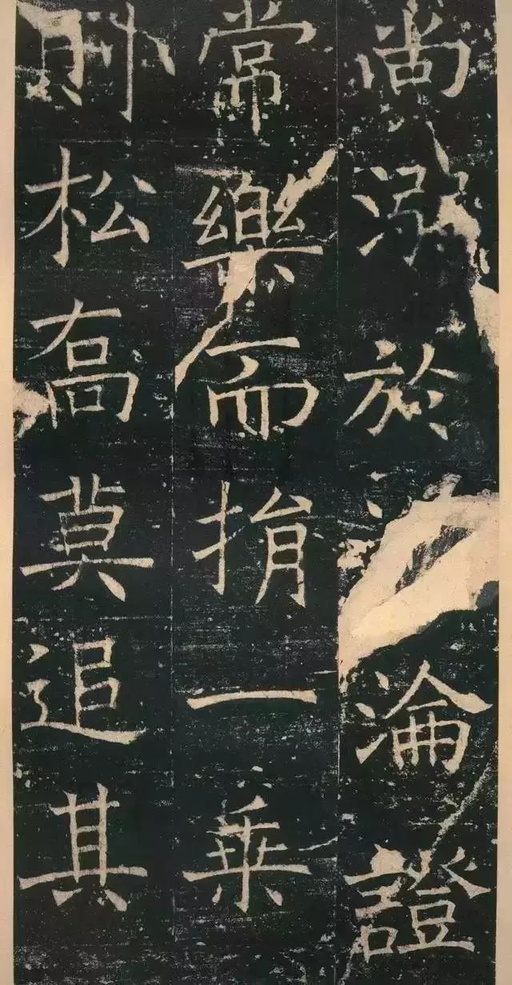 尚溺於淪證
常樂而捐一乘
則松喬莫追其